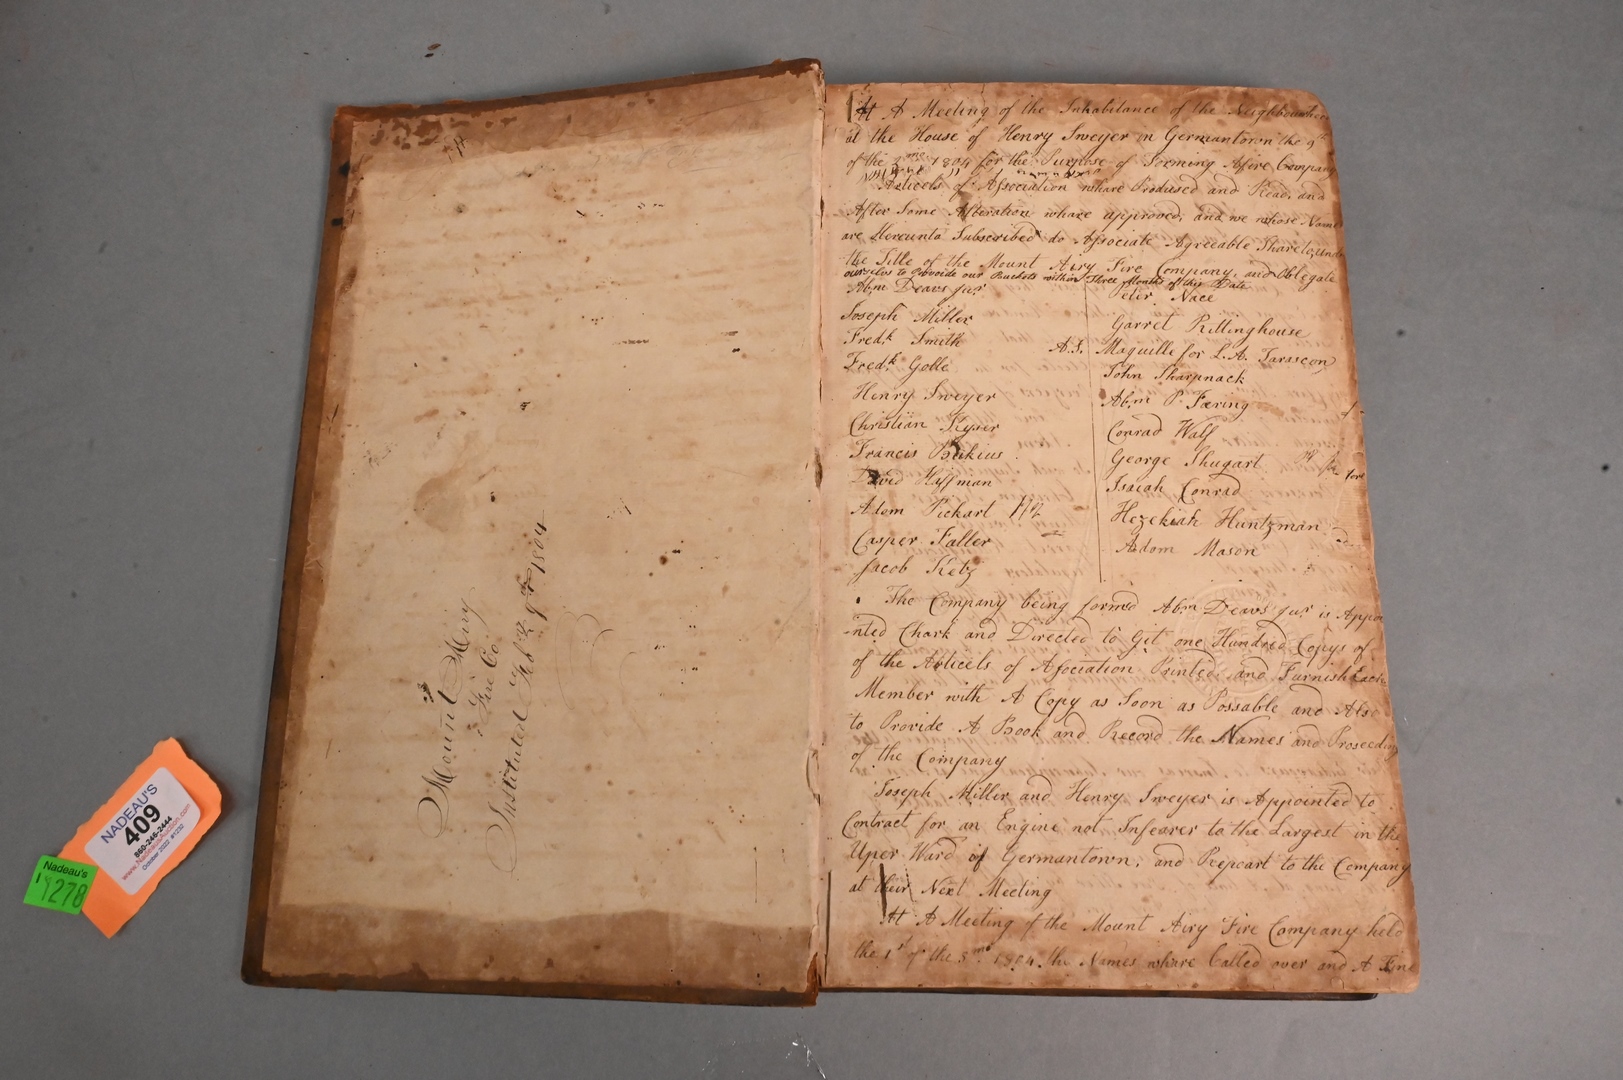 Mount Airy
Fire Co.
Instituted Feby. 9th 1804
At A Meeting of the Inhabitance of the Neighbourhood
at the House of Henry Sweyer in Germantown the 9th
of the 2 mo 1804 for the Purpose of Forming A fire Company
Articels of Association whare Prodused and Read, and
After Some Alteration whare approved, and we whose Names
are Hereunto Subscribed do Associate Agreeable Thareto, under
the Title of the Mount Airy Fire Company, and Oblegate
ourselvs to Provoide our Buckets within Three Months of this Date
Abm Deavs Junr
Joseph Miller
Fredk Smith
Fredk Golle
Henry Sweyer
Christian Kyser
Francis Bokius
David Hiffman
Adom Pickart
Casper Faller
Jacob Ketz
Petir. Nace
Garret Rillinghouse
A. S. Maquille for L. A. Tarascon
John Sharpnack
Abm P. Færing
Conrad Walf
George Shugart
Isaiah Conrad
Hezekiah Huntzman
Adom Mason
The Company being formed Abm Deavs Junr is Appoi
-nted Clark and Directed to Git one Hundred Copys of
of the Articels of Asociation Printed and Furnish Each
Member with A Copy as Soon as Possable and Also
to Provide A Book and Record the Names and Proseeding
of the Company
Joseph Miller and Henry Sweyer is Appointed to
Contract for an Engine not Infearer to the Largest in the
Uper Ward of Germantown, and Repoart to the Company
at their Next Meeting
At A Meeting of the Mount Airy Fire Company held
the 1st of the 3mo 1804 the Names whare Called over and A Fine
NADEAU'S
409
860-246-2444
www.NadeausAuction.com
October 2022 #1232
Nadeau's
1278